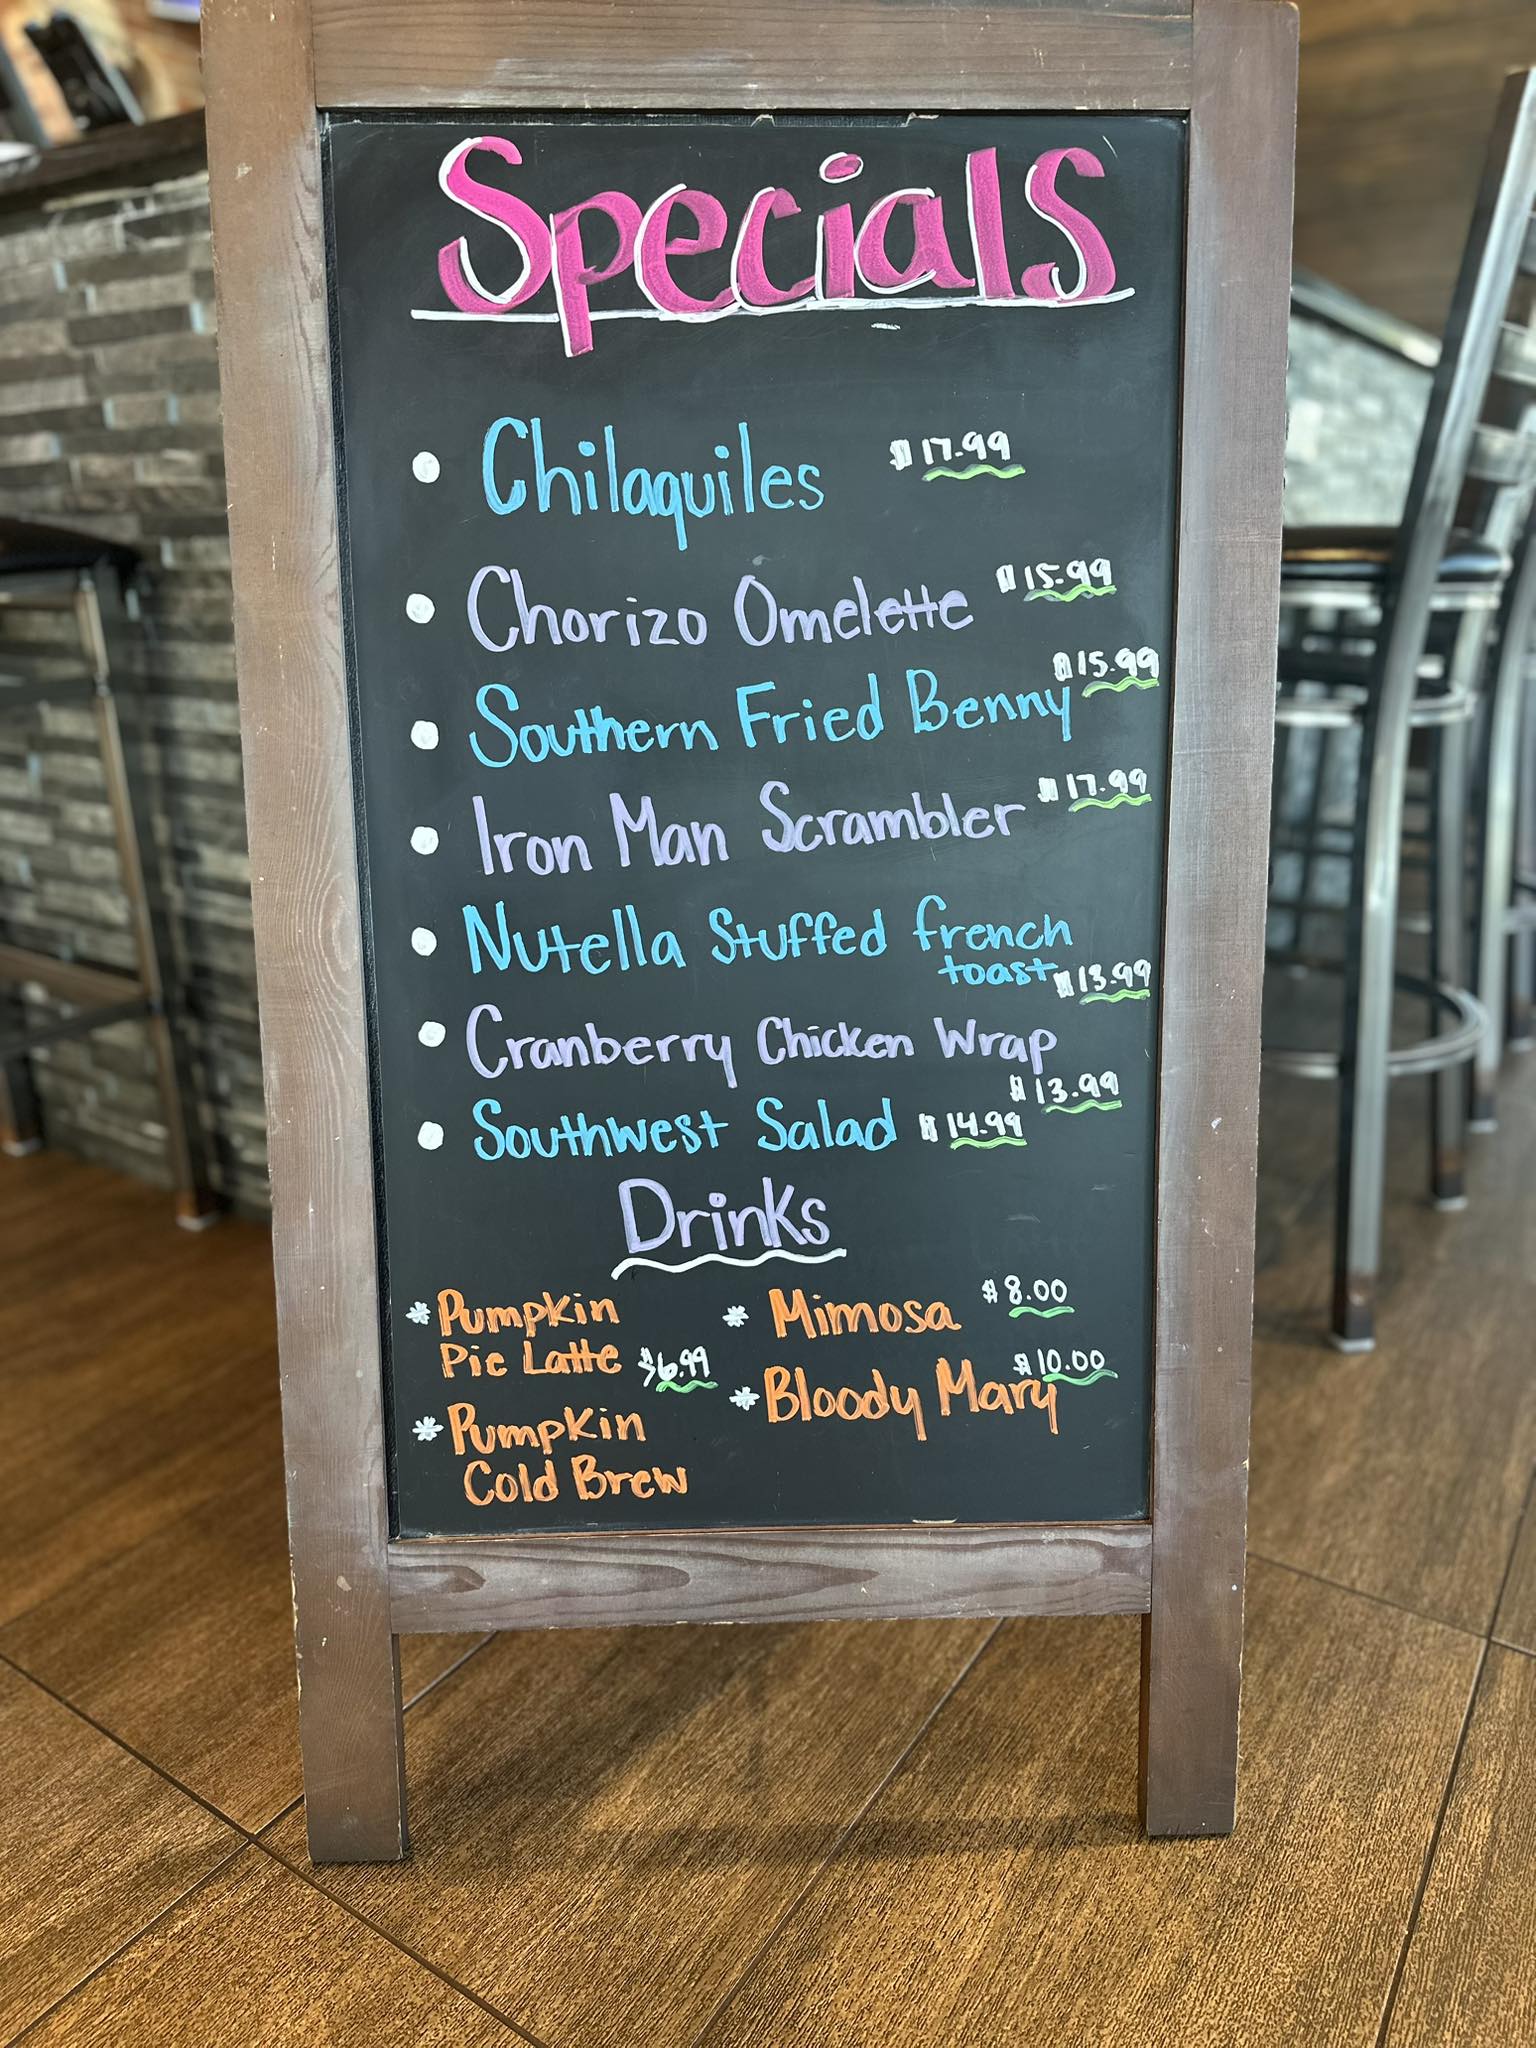 Specials
• Chilaquiles $17.99
• Chorizo Omelette $15.99
• Southern Fried Benny $15.99
• Iron Man Scrambler $17.99
• Nutella Stuffed french
toast $13.99
• Cranberry Chicken Wrap
$13.99
• Southwest Salad $14.99
Drinks
* Pumpkin
Pie Latte $6.99
* Pumpkin
Cold Brew
* Mimosa $8.00
* Bloody Mary $10.00